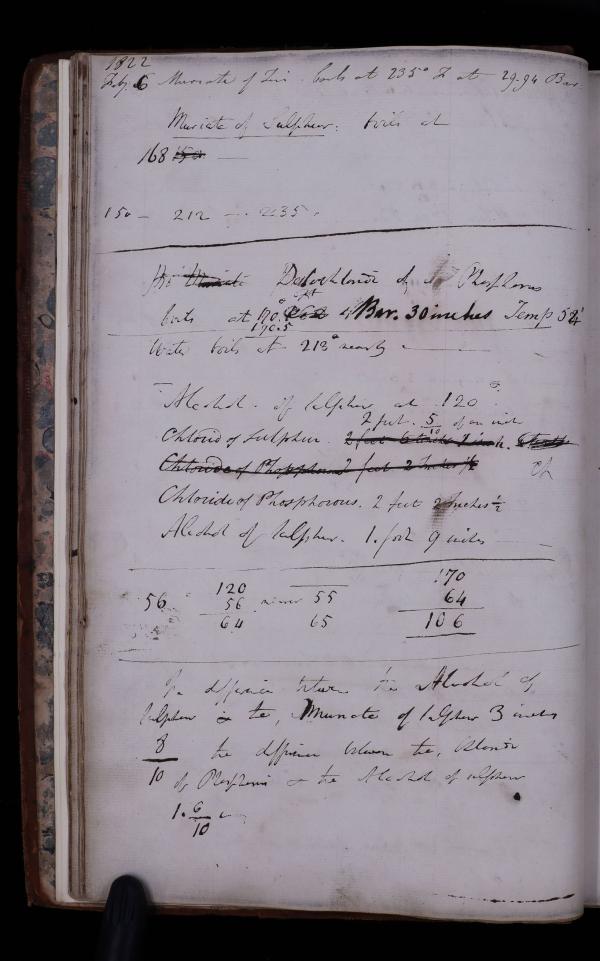 1822
Feby 6 Muriate of Tin. boils at 235° F at 29.94 Bar
Muriate of Sulphur: boils at
168 150 —
150 — 212 — 235.
Deutochloride of Phosphorus
boils at 170. at Bar. 30 inches Temp 54
170.5
Water boils at 213° nearly
Alcohol of sulphur at 120°
2 feet. 5/10 of an inch
Chlorid of Sulphur. 2 feet
Chloride of Phosphorus 2 feet 2 Inches 1/2
Chloride of Phosphorous. 2 feet 2 Inches 1/2
Alcohol of sulphur. 1. foot 9 inches
120 170
56 56 minus 55 64
64 65 106
The difference between the Alcohol of
sulphur & the, Muriate of sulphur 3 inches
8/10 the difference between the, Chloride
of Phosphorus & the Alcohol of sulphur
1. 6/10